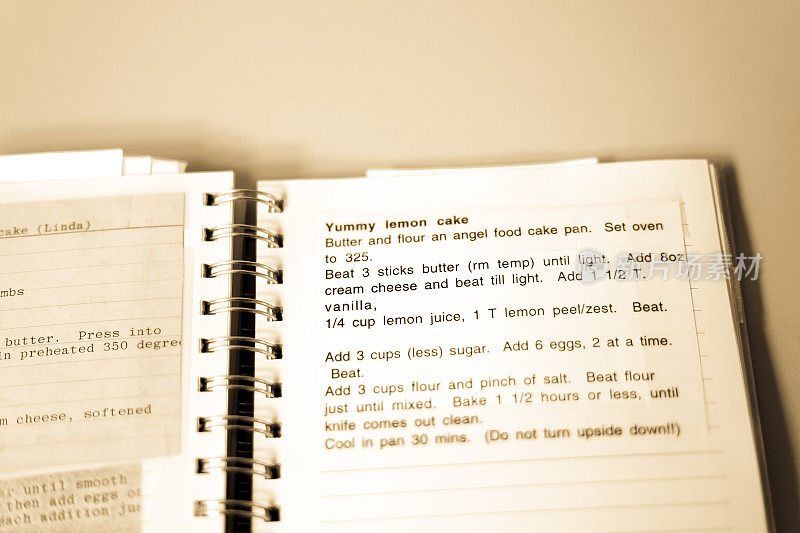 cake (Linda)
mbs
butter. Press into
in preheated 350 degree
m cheese, softened
until smooth
then add eggs
each addition
Yummy lemon cake
Butter and flour an angel food cake pan. Set oven
to 325.
Beat 3 sticks butter (rm temp) until light. Add 8oz
cream cheese and beat till light. Add 1/2 T.
vanilla,
1/4 cup lemon juice, 1 T lemon peel/zest. Beat.
Add 3 cups (less) sugar. Add 6 eggs, 2 at a time.
Beat.
Add 3 cups flour and pinch of salt. Beat flour
just until mixed. Bake 1 1/2 hours or less, until
knife comes out clean.
Cool in pan 30 mins. (Do not turn upside down!!)
视觉中国
VCG.COM